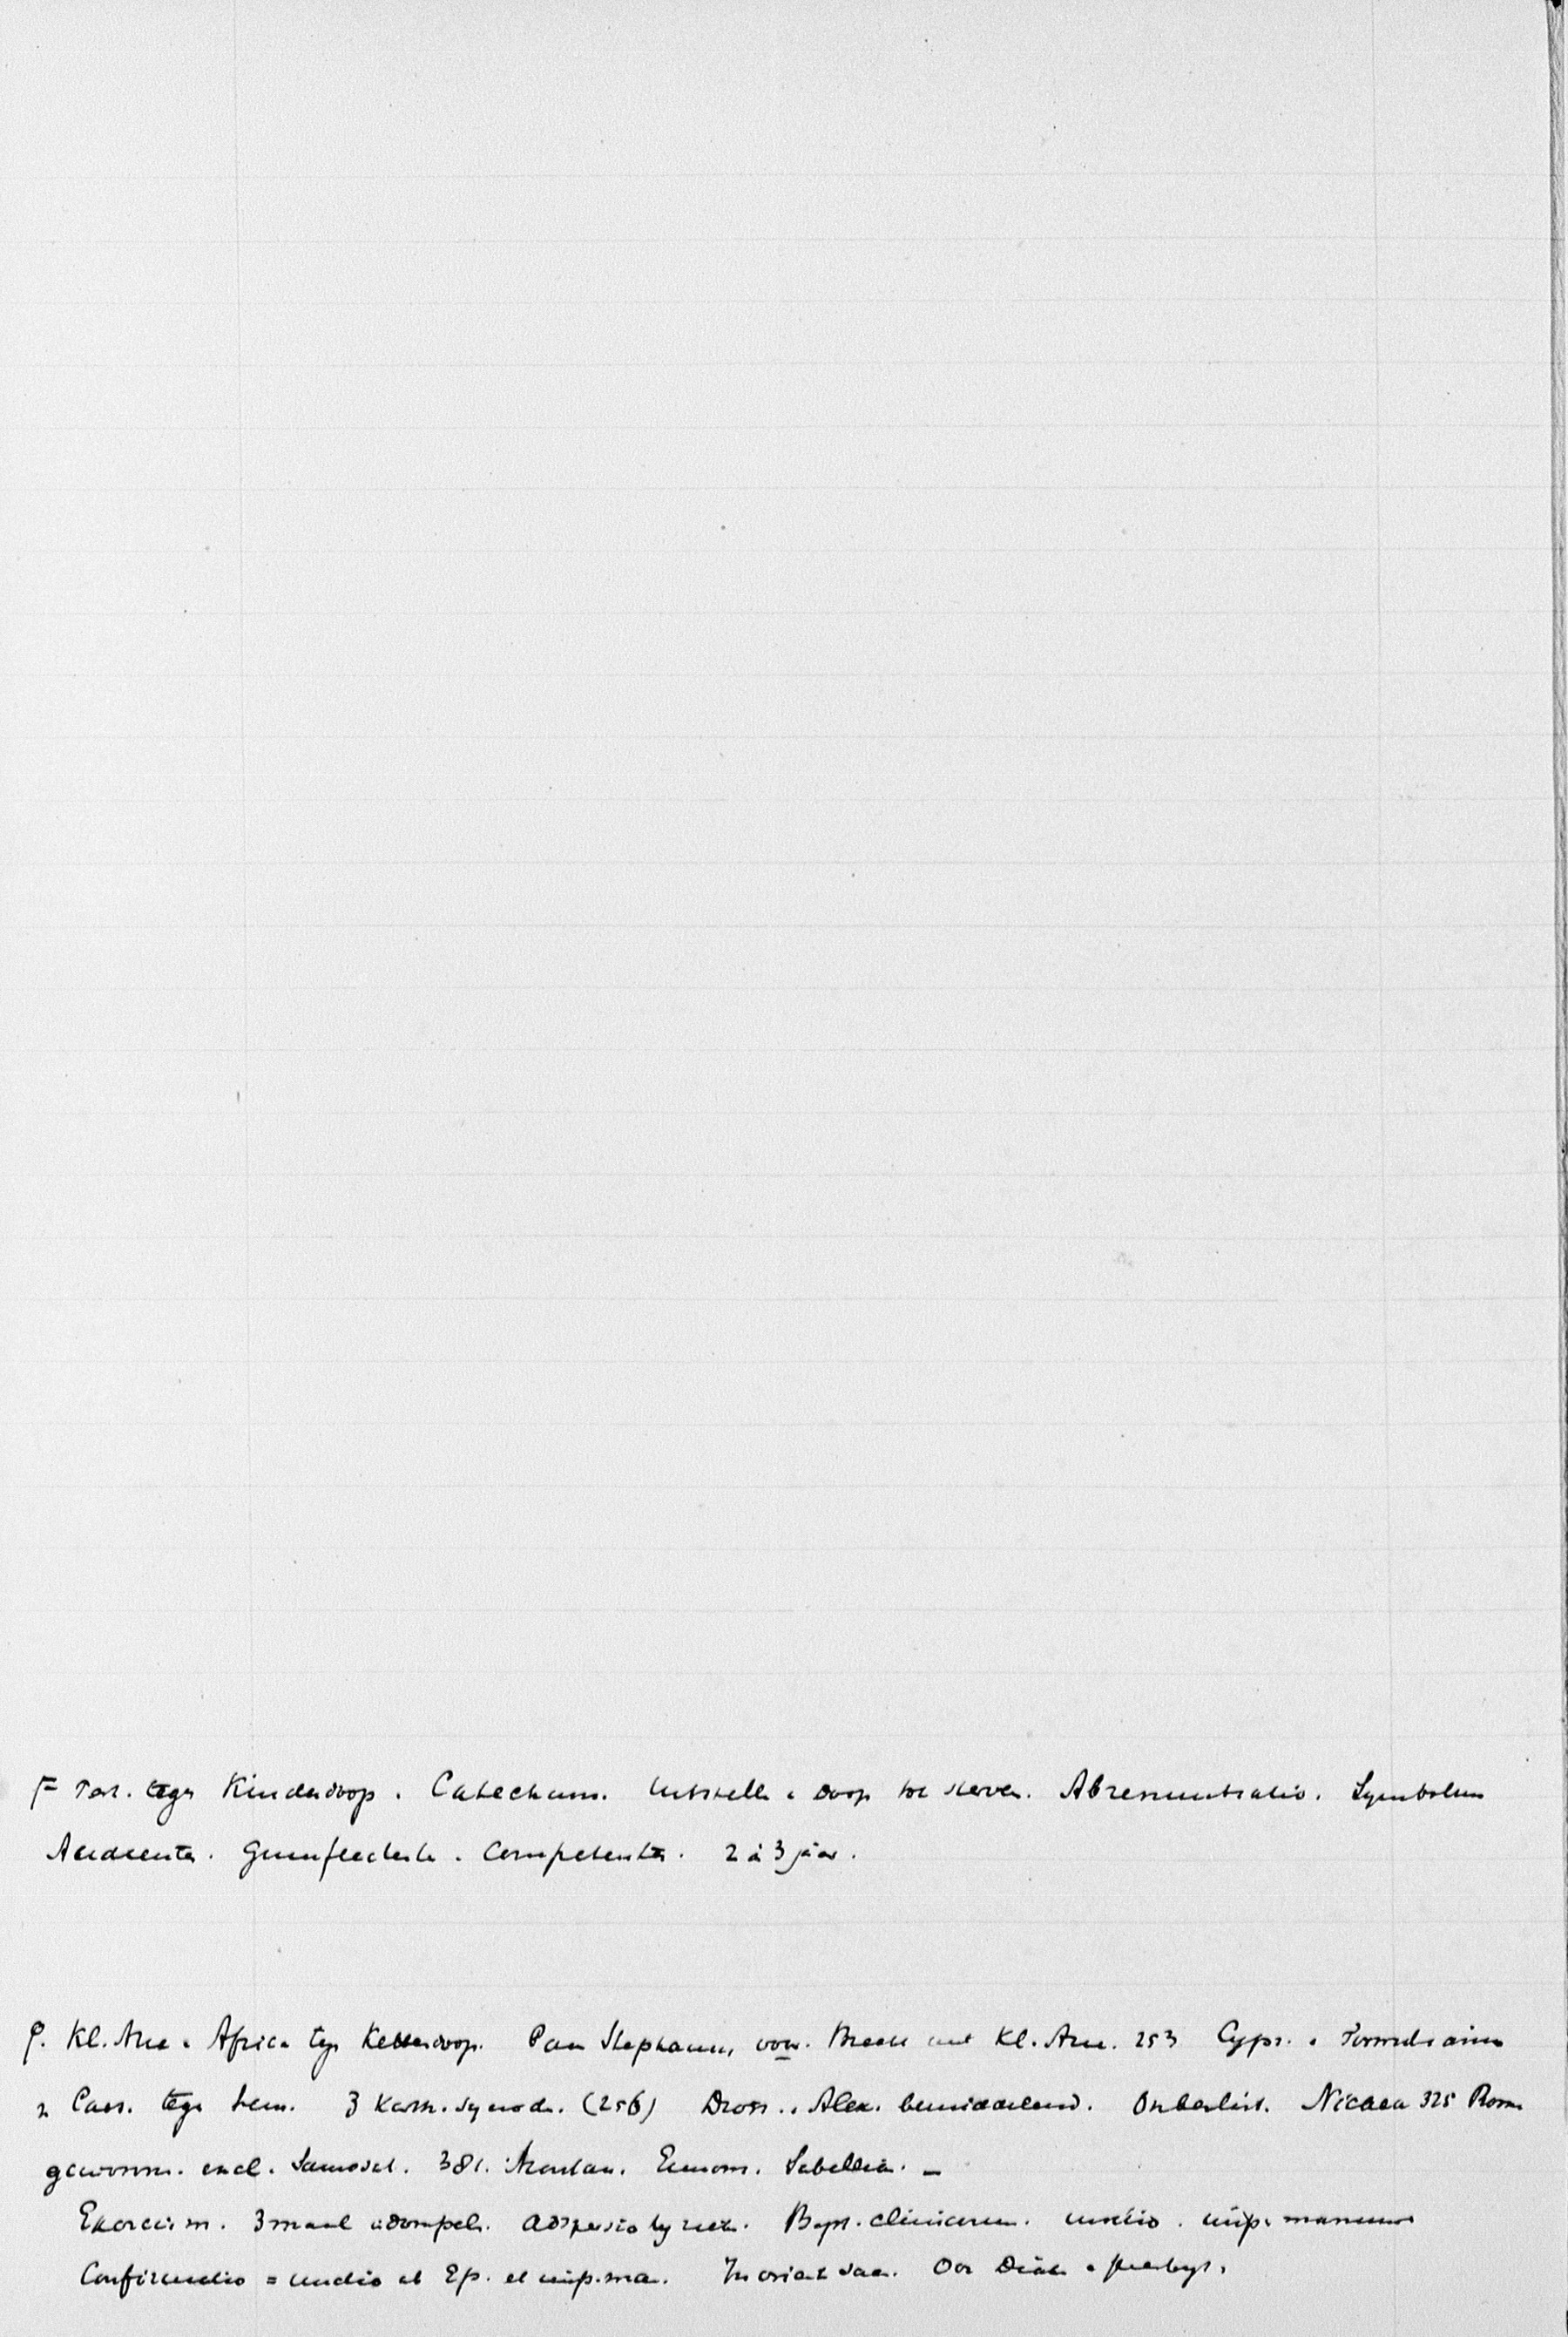 F Ter. tegn Kinderdoop. Catechum. Uitstelle . doop tot sterven. Abrenuntiatio. Symbolum
Audientes. Genuflectente. Competentes. 2 à 3 jaar.
9. Kl. Azie . Africa teg Ketterdoop. Paus Stephanus, voor. Breekt met Kl. Azie. 253 Cypr. . Firmilianus
Caes. tegn hem. 3 Karth. synod. (256) Dion. . Alex. bemiddelend. Onbeslist. Nicaea 325 Rome
gewonnen. excl. Samosat. 381. Montan. Eunom. Sabellia. —
Exorcism. 3 maal indompel. Adspersio by ziek. Bapt. clinicorum. unctio . imp. manuum
Confirmatio = unctio ab Ep. et imp. ma. In Oriente Ook Diak . presbyt.